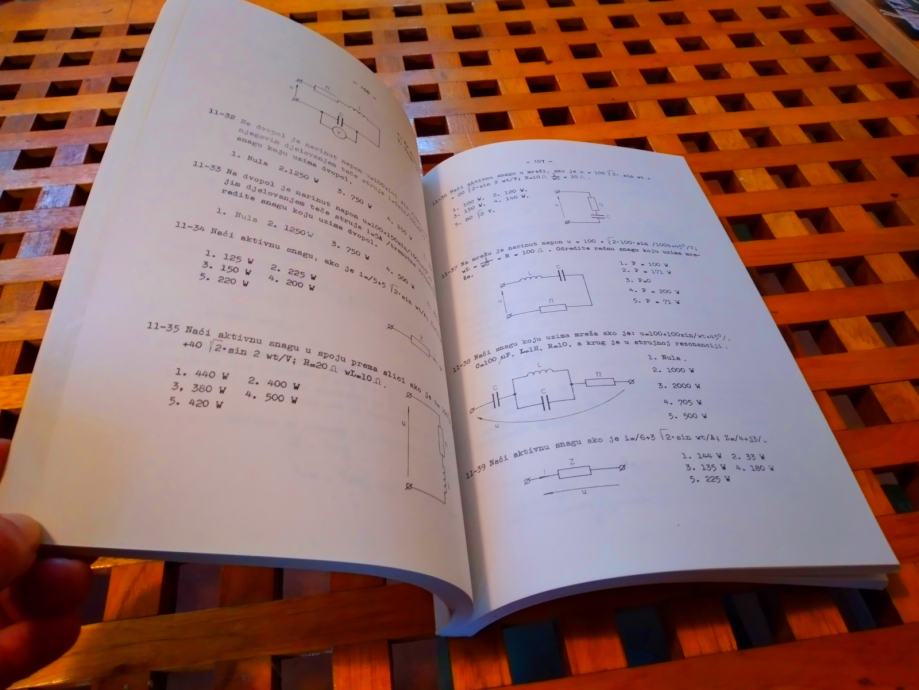 - 106 -
11-32 Na dvopol je narinut napon u=100+100
njegovim djelovanjem teče struja
snagu koju uzima dvopol.
1. Nula 2.1250 W 3. 750 W 4.
11-33 Na dvopol je narinut napon u=100+100sin/100
jim djelovanjem teče struja i=5A
redite snagu koju uzima dvopol.
1. Nula 2. 1250W 3. 750 W 4. 500 W
11-34 Naći aktivnu snagu, ako je i=/5+5 √2·sin wt/A
1. 125 W 2. 225 W
3. 150 W 4. 200 W
5. 220 W
11-35 Naći aktivnu snagu u spoju prema slici ako je
+40 √2·sin 2 wt/V; R=20Ω wL=10Ω.
1. 440 W 2. 400 W
3. 380 W 4. 500 W
5. 420 W
u
- 107 -
11-36 Naći aktivnu snagu u mreži, ako je u = 100 √2· sin wt +
1. 100 W. 2. 120 W.
3. 150 W. 4. 140 W.
11-37 Na mrežu je narinut napon u = 100 + √2·100·sin /100t+45°/V;
= R = 100 Ω . Odredite radnu snagu koju uzima mre-
ža.
1. P = 100 W
2. P = 171 W
3. P=0
4. P = 200 W
5. P = 71 W
L C
u
R
11-38 Naći snagu koju uzima mreža ako je: u=100+100sin/wt+45°/.
C=100 µF, L=1H, R=10, a krug je u strujnoj rezonanciji.
1. Nula .
2. 1000 W
3. 2000 W
4. 705 W
5. 500 W
C L C R
u
11-39 Naći aktivnu snagu ako je i=/6+3 √2·sin wt/A; Z=/4+j3/.
1. 144 W 2. 33 W
3. 135 W 4. 180 W
5. 225 W
i Z
u